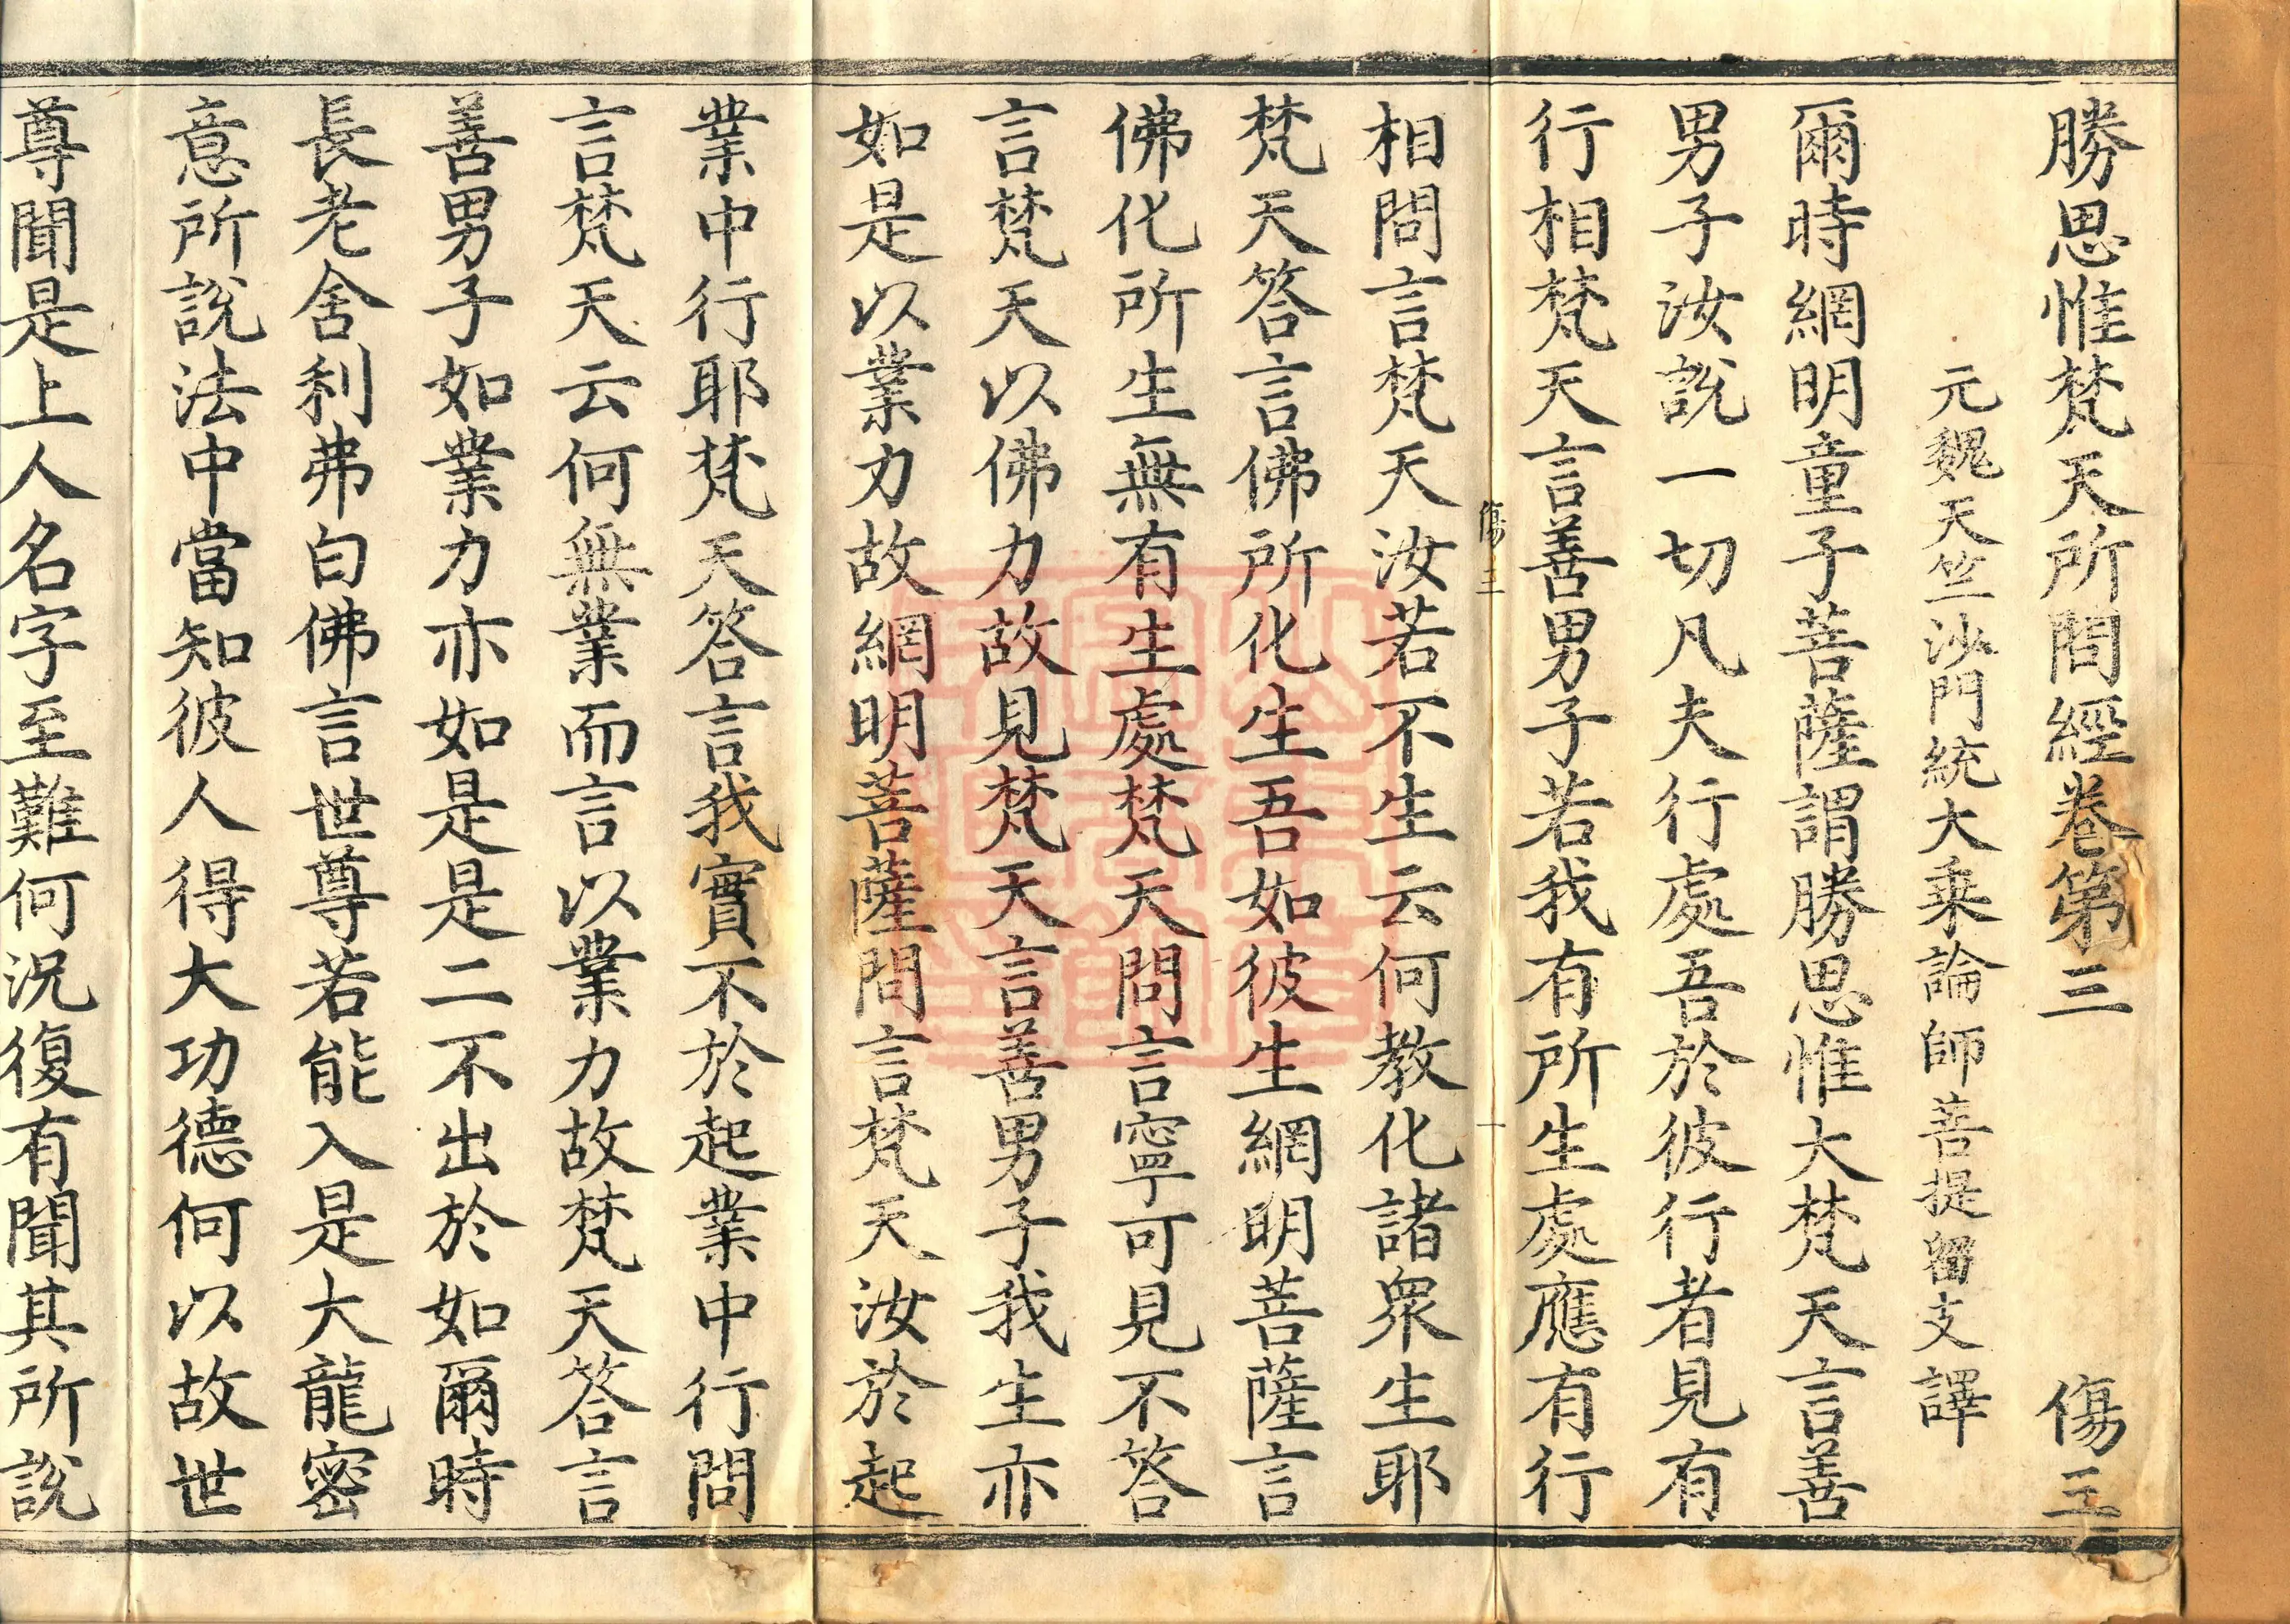 勝思惟梵天所問經卷第三 傷三
元魏天竺沙門統大乘論師菩提留支譯
爾時網明童子菩薩謂勝思惟大梵天言善
男子汝說一切凡夫行處吾於彼行者見有
行相梵天言善男子若我有所生處應有行
傷三 一
相問言梵天汝若不生云何教化諸衆生耶
梵天答言佛所化生吾如彼生網明菩薩言
佛化所生無有生處梵天問言寧可見不答
言梵天以佛力故見梵天言善男子我生亦
如是以業力故網明菩薩問言梵天汝於起
業中行耶梵天答言我實不於起業中行問
言梵天云何無業而言以業力故梵天答言
善男子如業力亦如是是二不出於如爾時
長老舍利弗白佛言世尊若能入是大龍密
意所說法中當知彼人得大功德何以故世
尊聞是上人名字至難何況復有聞其所說